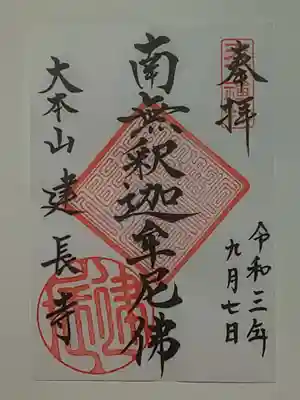 奉拝
南無釈迦牟尼佛
大本山建長寺
令和三年
九月七日